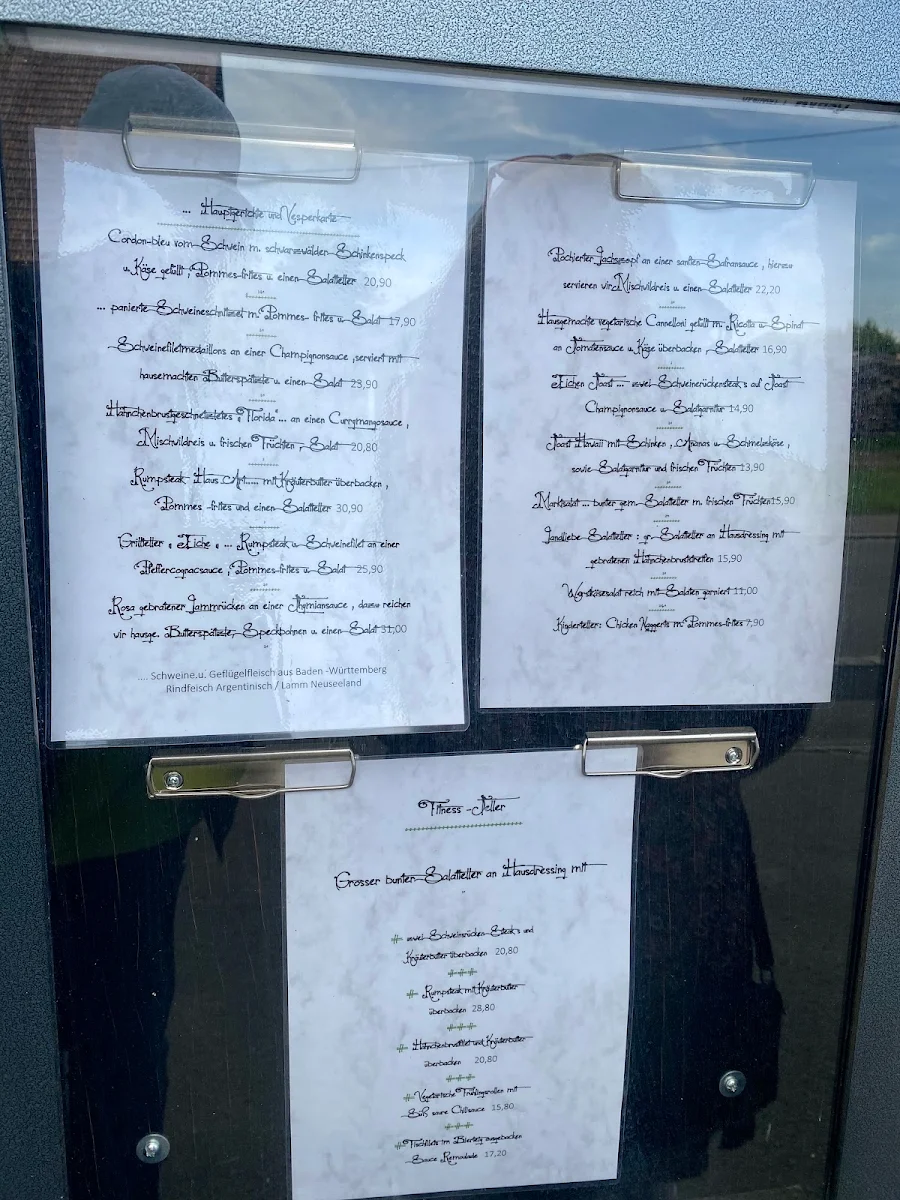 ... Hauptgerichte und Vesperkarte
Cordon-bleu vom Schwein m. schwarzwälder Schinkenspeck
u. Käse gefüllt, Pommes-frites u. einen Salatteller 20,90
... panierte Schweineschnitzel m. Pommes- frites u. Salat 17,90
Schweinefiletmedaillons an einer Champignonsauce ,serviert mit
hausemachten Butterspätzle u. einen Salat 23,90
Hähnchenbrustgeschnetzeltes „Florida"... an einen Currymangosauce ,
Mischwildreis u. frischen Früchten , Salat 20,80
Rumpsteak Haus Art..... mit Kräuterbutter überbacken ,
Pommes -frites und einen Salatteller 30,90
Grillteller „ Eiche „ ... Rumpsteak u. Schweinefilet an einer
Pfeffercognacsauce , Pommes-frites u. Salat 25,90
Rosa gebratener Lammrücken an einer Thymiansauce , dazu reichen
wir hausge. Butterspätzle, Speckbohnen u. einen Salat 31,00
.... Schweine.u. Geflügelfleisch aus Baden -Württemberg
Rindfleisch Argentinisch / Lamm Neuseeland
Pochierter Lachszopf an einer sanften Safransauce , hierzu
servieren wir Mischwildreis u. einen Salatteller 22,20
Hausgemachte vegetarische Cannelloni gefüllt m. Ricotta u. Spinat
an Tomatensauce u. Käse überbacken , Salatteller 16,90
Eichen Toast ... zwei Schweinerückensteak s auf Toast
Champignonsauce u. Salatgarnitur 14,90
Toast Hawaii mit Schinken , Ananas u. Schmelzkäse ,
sowie Salatgarnitur und frischen Früchten 13,90
Marktsalat ... bunter gem. Salatteller m. frischen Früchten15,90
Landliebe Salatteller : gr. Salatteller an Hausdressing mit
gebratenen Hähnchenbruststreifen 15,90
Wurstkäsesalat reich mit Salaten garniert 11,00
Kinderteller: Chicken Naggerts m. Pommes-frites 7,90
Fitness -Teller
Grosser bunter Salatteller an Hausdressing mit
# zwei Schweinsrücken Steak s und
Kräuterbutter überbacken 20,80
###
# Rumpsteak mit Kräuterbutter
überbacken 28,80
###
# Hähnchenbrustfilet und Kräuterbutter
überbacken 20,80
###
# Vegetarische Frühlingsrollen mit
Süß saure Chilisauce 15,80
###
# Fischfilets im Bierteig ausgebacken
Sauce Remoulade 17,20